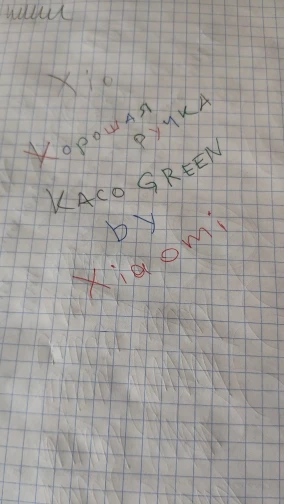 Xio
Хорошая
ручка
KACO GREEN
by
Xiaomi